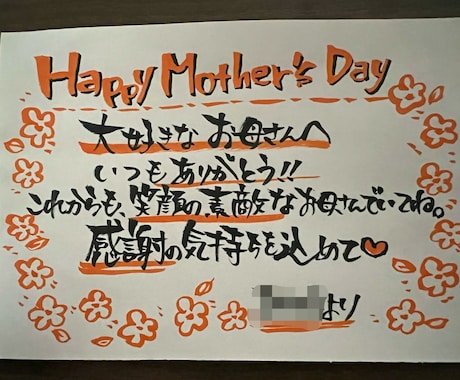 Happy Mother's Day
大好きな お母さんへ
いつもありがとう!!
これからも、笑顔の素敵なお母さんでいてね。
感謝の気持ちを込めて♥
より